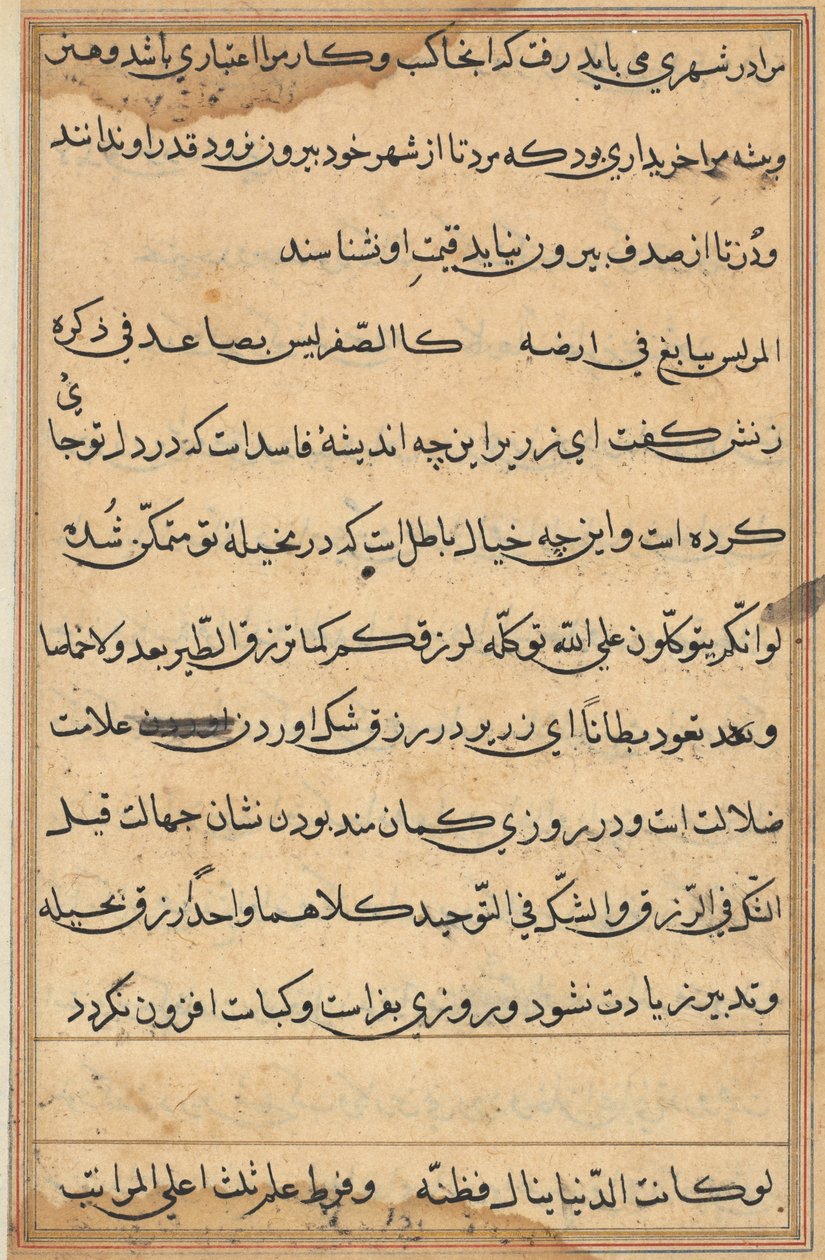 مرا در شهري مي بايد رفت كه انجا كسب و كار مرا اعتباري باشد و هنر
و پيشه مرا خريداري بود كه مرد تا از شهر خود بيرون نرود قدر او ندانند
و دُر تا از صدف بيرون نيايد قيمتِ او نشناسند
المر ليس ببابغ في ارضه كاالصّقر ليس بصاعد في ذكره
زنش كفت اي زرير اين چه انديشهٔ فاسد است كه در دل تو جايُ
كرده است و اين چه خيال باطل است كه در مخيلهٔ تو متمكّن شُده
لو انّكم يتوكّلون علي اللّه توكّله لرزقكم كما ترزق الطّير بعد ولا خماصا
و تعود بطاناً اي زرير در رزق شك اوردن علامت
ضلالت است و در روزي كمان مند بودن نشان جهالت قيل
الشّك في الرّزق و الشكّ في التّوحيد كلاهما واحدٌ رزق بحيله
و تدبير زيادت نشود و روزي بفراست و كياست افزون نكردد
لو كانت الدّنيا ينال فظنّه و فرط علم ثلث اعلي المراتب